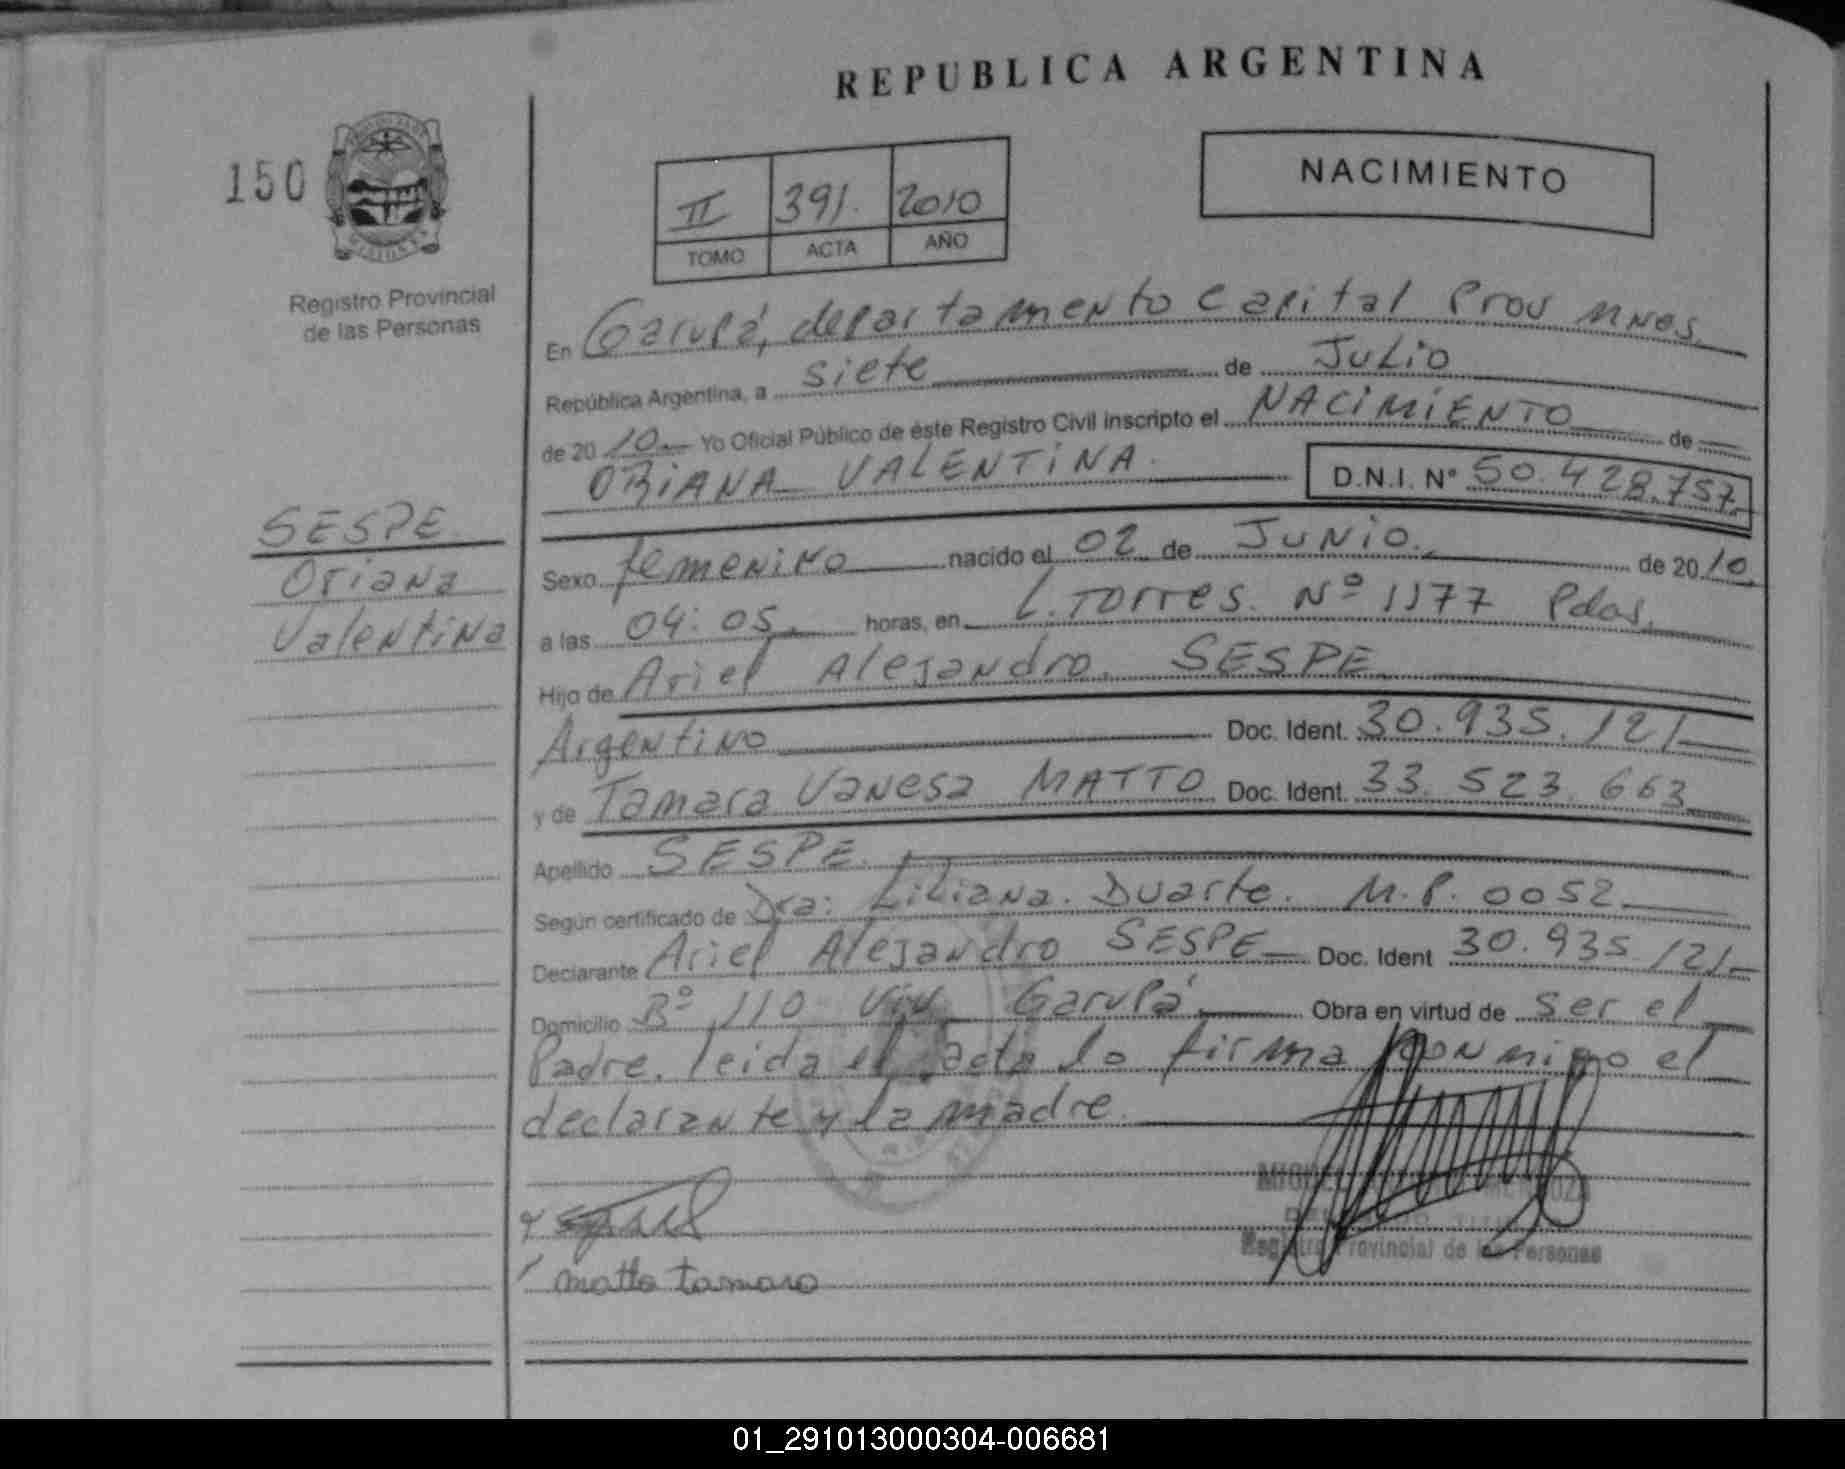 REPUBLICA ARGENTINA
150
NACIMIENTO
II 391. 2010
TOMO ACTA AÑO
Registro Provincial
de las Personas
En Garupá, departamento Capital Prov Mnes.
República Argentina, a siete de Julio
de 2010 Yo Oficial Público de éste Registro Civil inscripto el NACIMIENTO de
ORIANA VALENTINA. D.N.I. Nº 50.428.757
SESPE.
Oriana
Valentina
Sexo femenino nacido el 02 de JUNIO. de 2010
a las 04:05. horas, en L. Torres. Nº 1177 Pdas.
Hijo de Ariel Alejandro. SESPE
Argentino Doc. Ident. 30.935.121
y de Tamara Vanesa MATTO Doc. Ident. 33.523.663
Apellido SESPE.
Según certificado de Dra: Liliana. Duarte. M.P. 0052
Declarante Ariel Alejandro SESPE Doc. Ident 30.935.121
Domicilio Bº 110 Viv. Garupá Obra en virtud de ser el
Padre. leida el acta lo firma conmigo el
declarante y la madre.
MIGUEL MENDOZA
Registro Provincial de las Personas
matto tamara
01_291013000304-006681